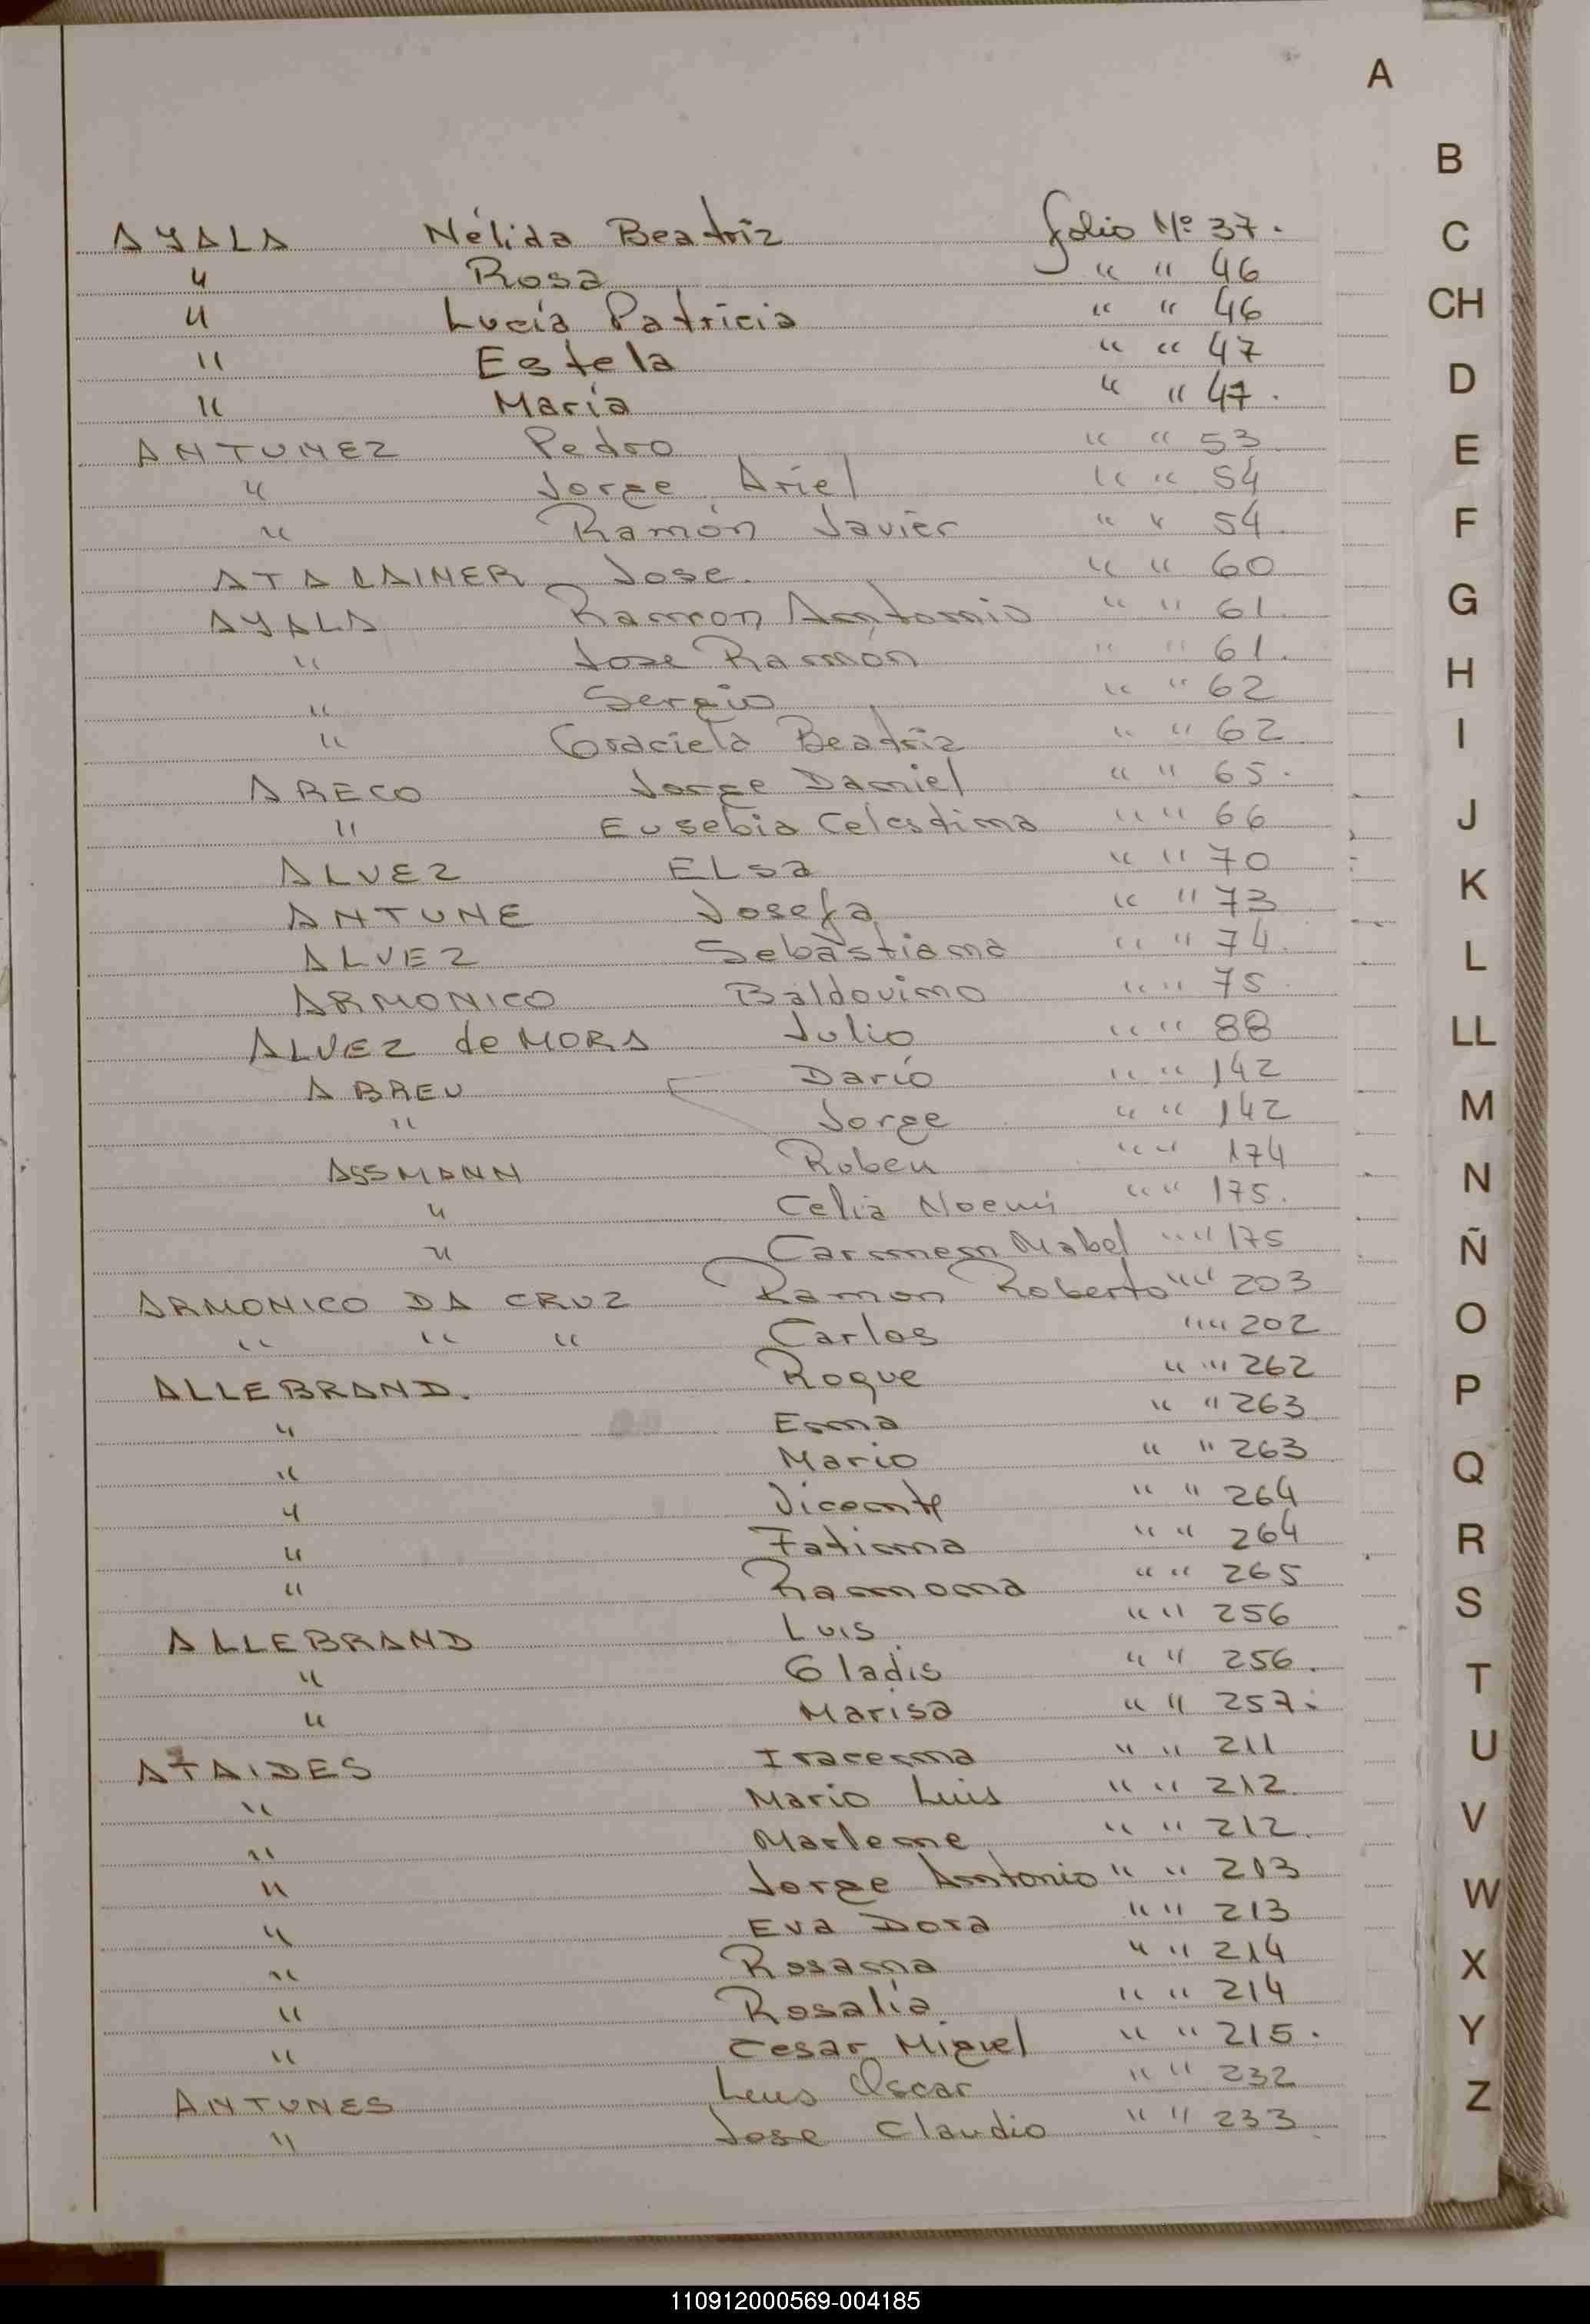 A
B
C
CH
D
E
F
G
H
I
J
K
L
LL
M
N
Ñ
O
P
Q
R
S
T
U
V
W
X
Y
Z
AYALA Nélida Beatriz folio Nº 37.
" Rosa " " 46
" Lucía Patricia " " 46
" Estela " " 47
" María " " 47.
ANTUNEZ Pedro " " 53
" Jorge Ariel " " 54
" Ramón Javier " " 54.
ATALAINER Jose. " " 60
AYALA Ramon Antonio " " 61.
" Jose Ramón " " 61.
" Sergio " " 62
" Graciela Beatriz " " 62
ARECO Jorge Daniel " " 65.
" Eusebia Celestina " " 66
ALVEZ ELsa " " 70
ANTUNE Josefa " " 73
ALVEZ Sebastiana " " 74.
ARMONICO Baldovino " " 75.
ALVEZ de MORA Julio " " 88
ABREU Darío " " 142
" Jorge " " 142
ASSMANN Ruben " " 174
" Celia Noemí " " 175.
" Carmen Mabel " " 175
ARMONICO DA CRUZ Ramon Roberto " " 203
" " " Carlos " " 202
ALLEBRAND. Roque " " 262
" Ema " " 263
" Mario " " 263
" Vicente " " 264
" Fatima " " 264
" Ramona " " 265
ALLEBRAND Luis " " 256
" Gladis " " 256.
" Marisa " " 257.
ATAIDES Iracema " " 211
" Mario Luis " " 212.
" Marlene " " 212.
" Jorge Antonio " " 213
" Eva Dora " " 213
" Rosana " " 214
" Rosalía " " 214
" Cesar Miguel " " 215.
ANTUNES Luis Oscar " " 232
" Jose Claudio " " 233.
110912000569-004185